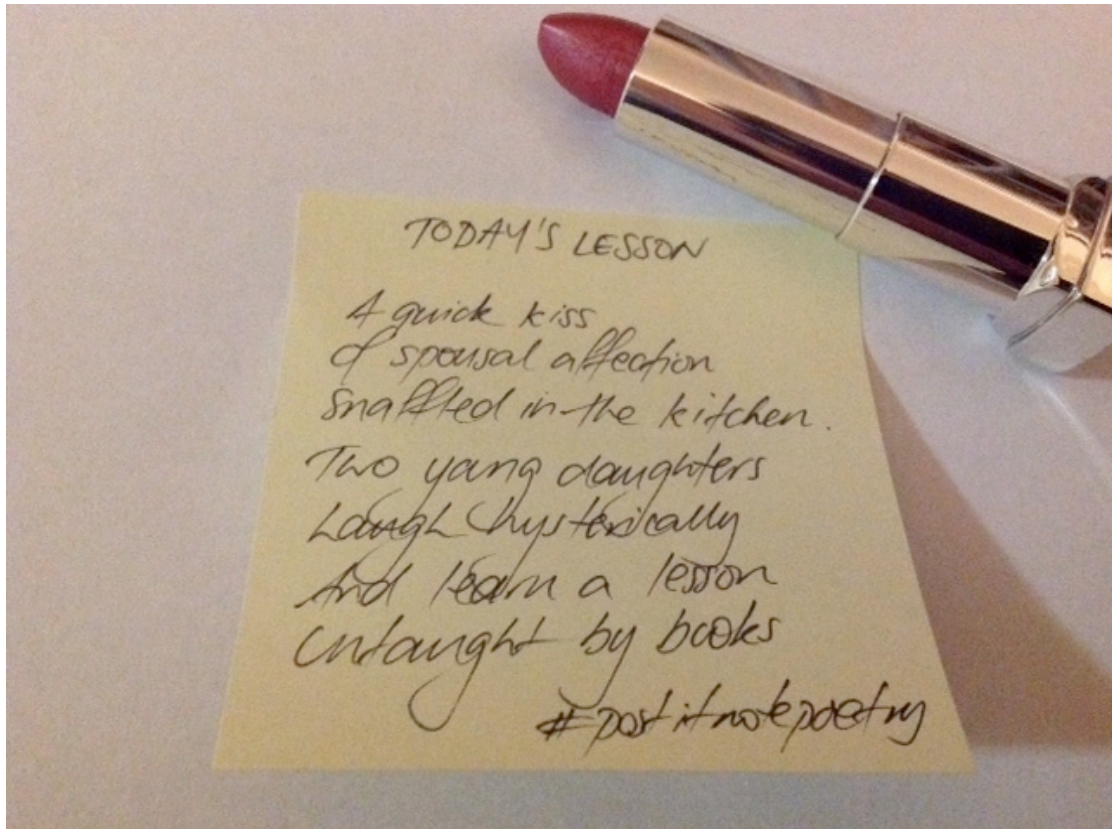 TODAY'S LESSON
A quick kiss
Of spousal affection
Snaffled in the kitchen.
Two young daughters
Laugh hysterically
And learn a lesson
Untaught by books
#postitnotepoetry